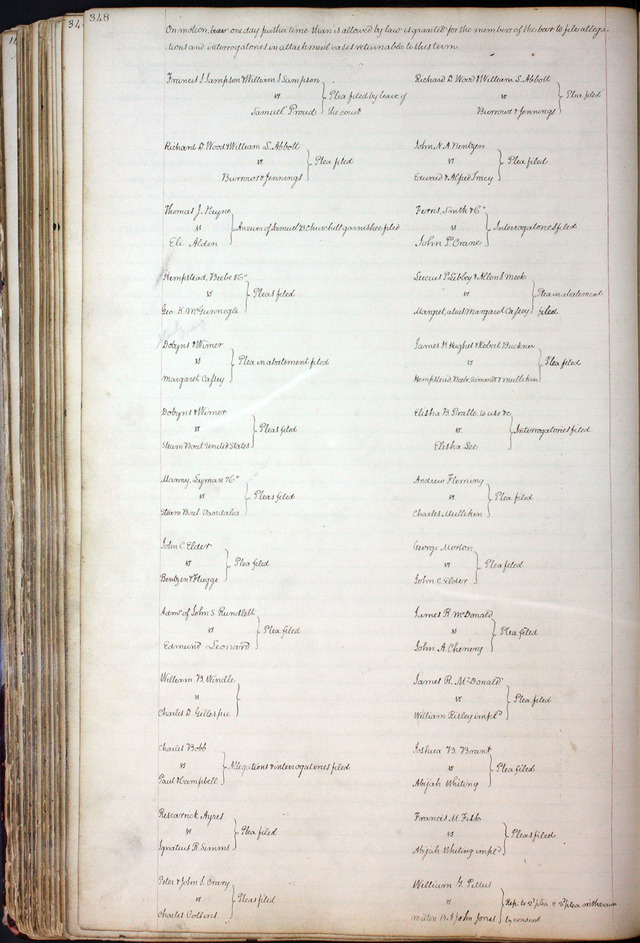 348
34
On motion, one day further time than is allowed by law is granted for the members of the bar to file allega-
tions and interrogatories in attachment cases returnable to this term.
Francis J Sampson & William J Sampson
vs
Samuel Proud
Plea filed by leave of
the court
Richard D. Wood & William S. Abbott
vs
Burrows & Jennings
Plea filed
Richard D. Wood & William S. Abbott
vs
Burrows & Jennings
Plea filed
John N. A. Bentzen
vs
Edward & Alfred Tracy
Plea filed
Thomas J. Payne
vs
Eli Alden
Answer of Samuel B Churchill garnishee filed
Ferris, Smith & Co
vs
John P. Crane
Interrogatories filed
Hempstead, Beebe & Co
vs
Geo. K. McGunnegle
Pleas filed
Lucius P. Libbey & Allen Meek
vs
Margret, alias Margaret Cafsey
Plea in abatement
filed.
Dobyns & Wimer
vs
Margaret Cafsey
Plea in abatement filed
James H. Hughes & Robert Buckner
vs
Hempstead, Beebe, Simonds & Mullikin
Plea filed
Dobyns & Wimer
vs
Steam Boat United States
Pleas filed
Elisha B. Pratte, to use &c
vs
Elisha Lee
Interrogatories filed
Manny, Lyman & Co
vs
Steam Boat Vandalia
Pleas filed
Andrew Fleming
vs
Charles Mullikin
Plea filed
John C. Elder
vs
Bentzen & Flugge
Plea filed
George Morton
vs
John C. Elder
Plea filed
Admr of John S. Rundlett
vs
Edmund Leonard
Plea filed
James R. McDonald
vs
John A. Chenery
Plea filed
William B. Windle
vs
Charles D. Gillespie
James R. McDonald
vs
William Risley impld
Plea filed
Charles Bobb
vs
Paul & Campbell
Allegations & interrogatories filed
Joshua B. Brant
vs
Abijah Whiting
Plea filed
Rescarrick Ayres
vs
Ignatius R. Simms
Plea filed
Francis M. Fisk
vs
Abijah Whiting impld
Pleas filed
Peter & John S. Crary
vs
Charles Collins
Pleas filed
William G. Pettus
vs
John Jones
Rep. to 2d plea & 3d plea withdrawn
by consent